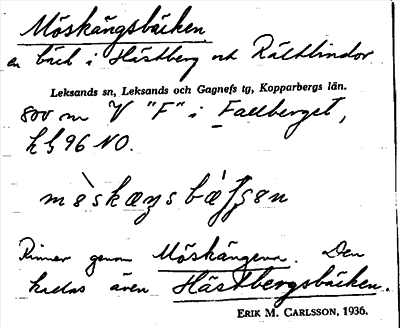 Möskängsbäcken
en bäck i Hästberg och Rältlindor
Leksands sn, Leksands och Gagnefs tg, Kopparbergs län.
800 m V "F" i Fallberget,
96 NO.
Rinner genom Möskängena. Den
kallas även Hästbergsbäcken.
ERIK M. CARLSSON, 1936.